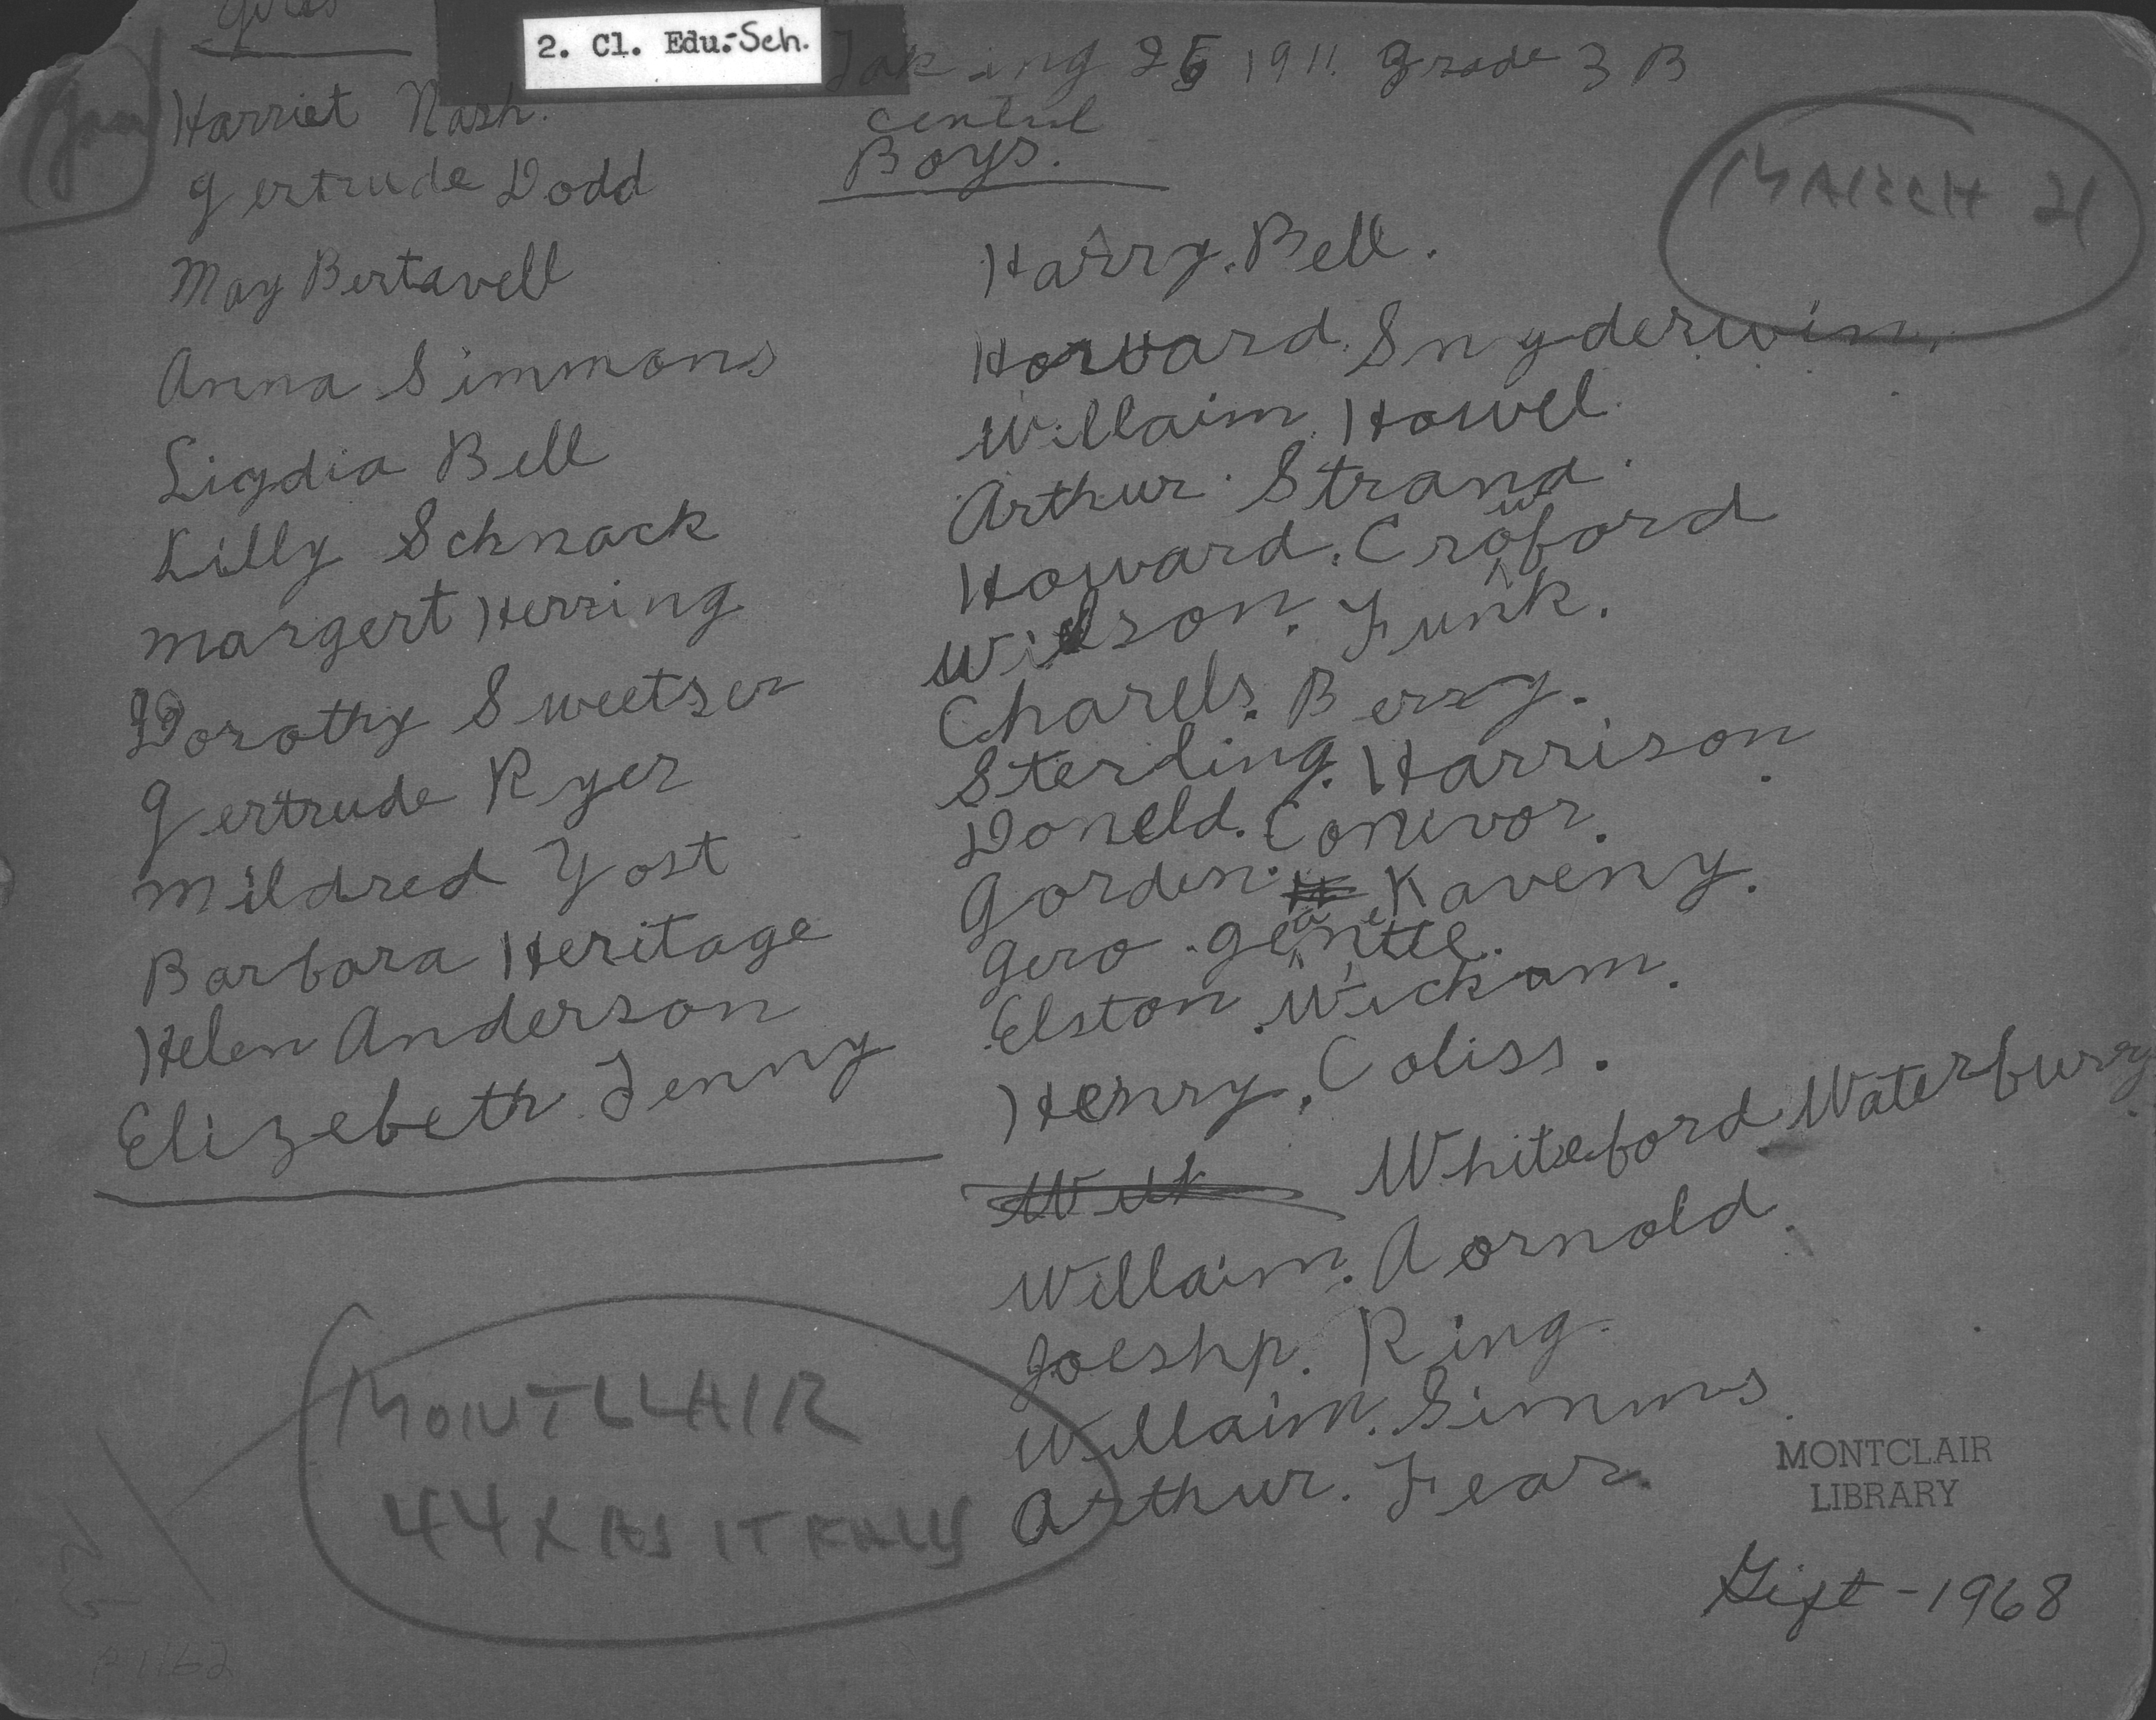 2. Cl. Edu:-Sch.
Taking 25 1911. Grade 3 B
Central
Harriet Nash.
Gertrude Dodd
May Bertavell
Anna Simmons
Liydia Bell
Lilly Schnack
Margert Herring
Dorothy Sweetser
Gertrude Ryer
Mildred Yost
Barbara Heritage
Helen Anderson
Elizebeth Jenny
Boys.
Harry. Bell.
Horward. Snyderwin.
Willaim. Howel.
Arthur. Strand.
Howard. Crowford
Wilson. Funk.
Charels. Berry.
Sterling. Harrison.
Doneld. Conevor.
Gorden. Kaveny.
Gero.
Elston. Wickam.
Henry. Coliss.
Whiteford Waterbury
Willaim. Aornold.
Joeshp. Ring.
Willaim. Simms.
Arthur. Fear.
MARCH 21
MONTCLAIR
44X AS IT
MONTCLAIR
LIBRARY
Gift - 1968